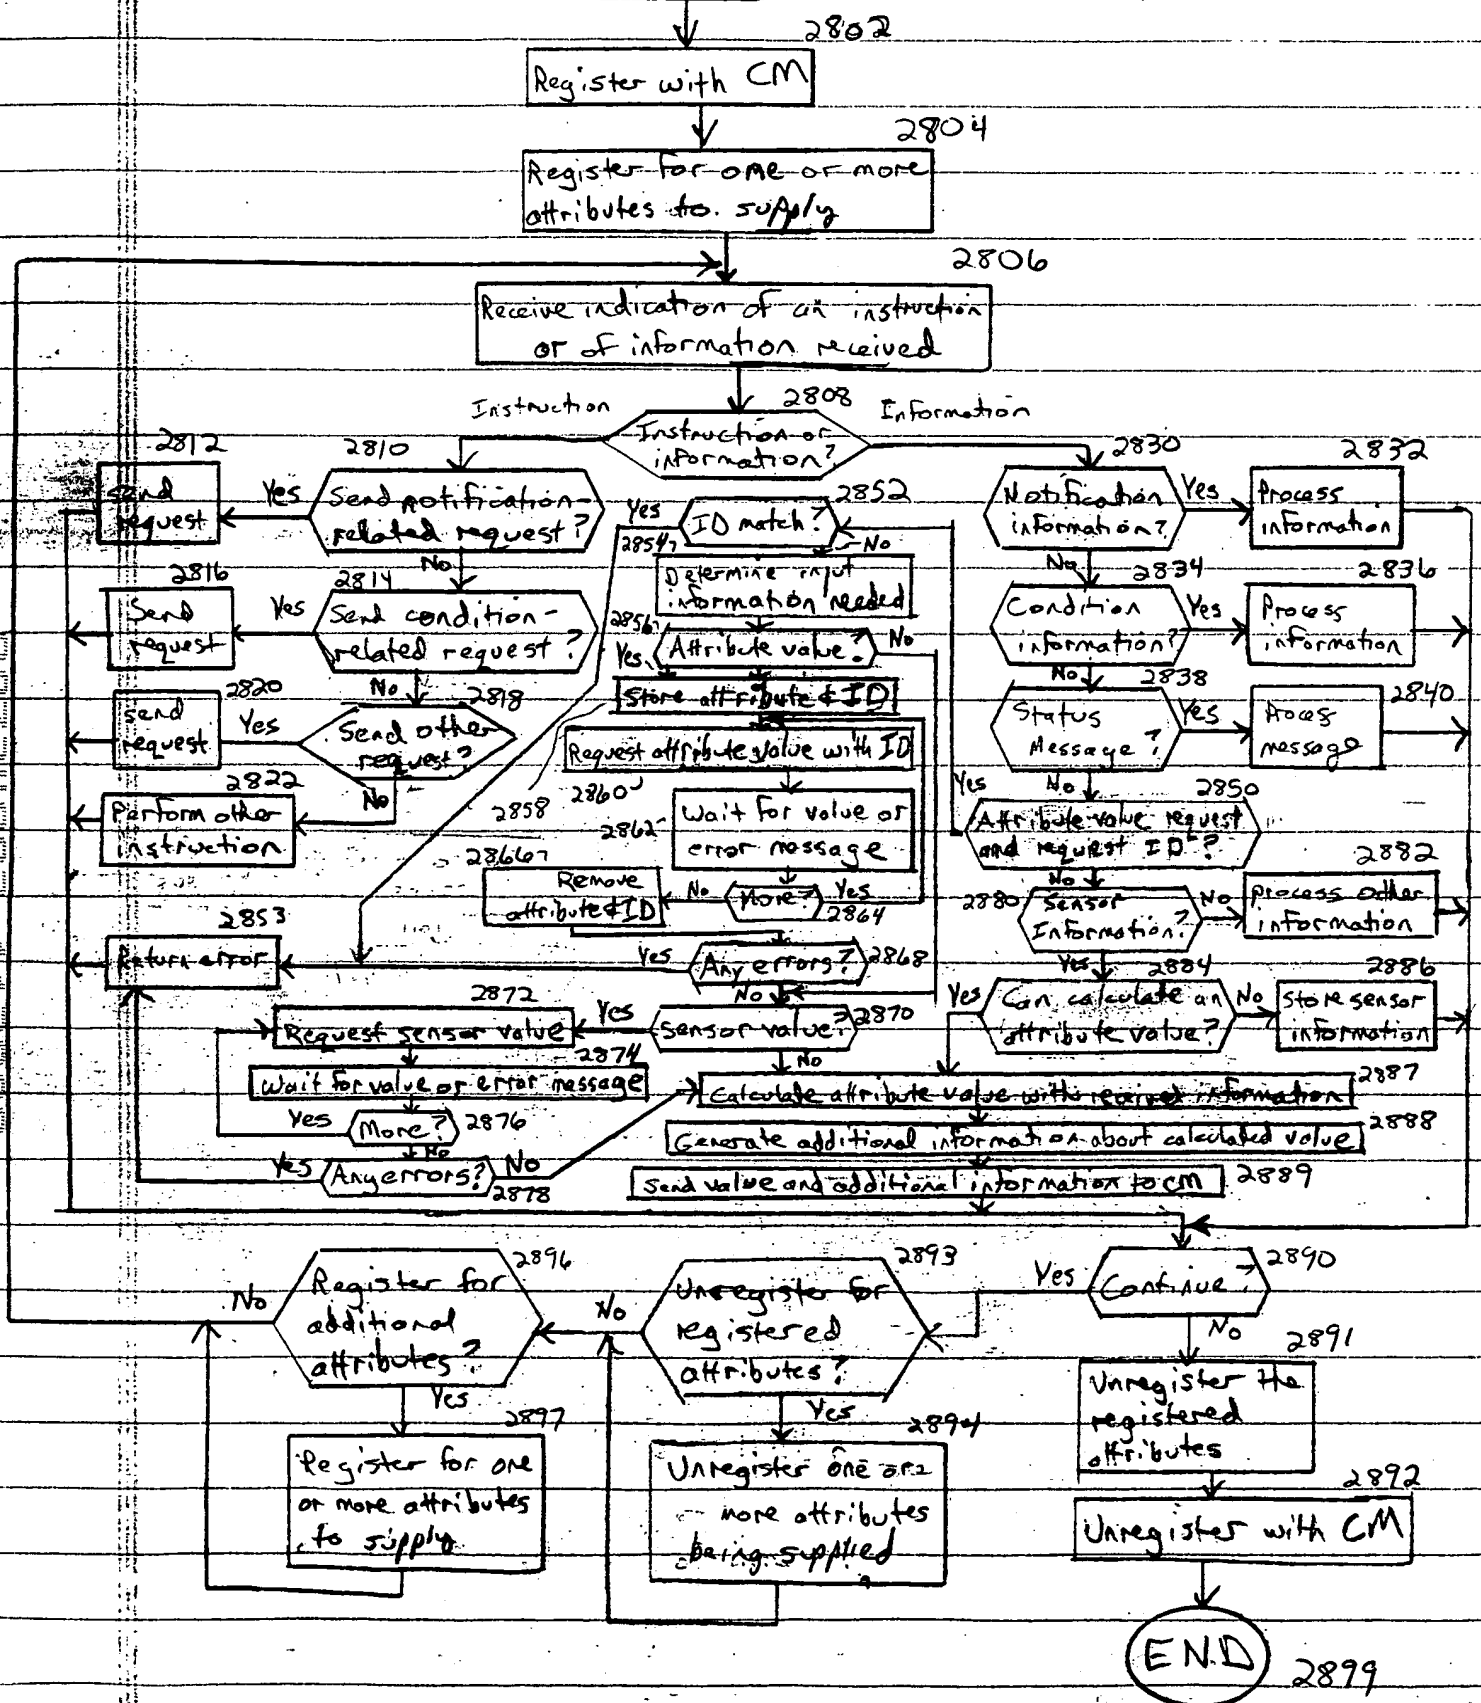 2802
Register with CM
2804
Register for one or more
attributes to supply
2806
Receive indication of an instruction
or of information received
Instruction
2808
Information
Instruction or
information?
2812
Send
request
Yes
2810
Send notification-
related request?
No
2816
Send
request
Yes
2814
Send condition-
related request?
No
2820
Send
request
Yes
2818
Send other
request?
No
2822
Perform other
instruction
2853
Return error
Yes
2852
ID match?
No
2854
Determine input
information needed
2856
Yes
Attribute value?
No
Store attribute & ID
2858
Request attribute value with ID
2860
2862
Wait for value or
error message
2866
Remove
attribute & ID
No
More?
Yes
2864
Yes
Any errors?
2868
No
Yes
Sensor value?
2870
No
2872
Request sensor value
2874
Wait for value or error message
Yes
More?
2876
No
Yes
Any errors?
No
2878
2830
Notification
information?
Yes
2832
Process
information
No
2834
Condition
information?
Yes
2836
Process
information
No
2838
Status
Message?
Yes
2840
Process
message
No
2850
Yes
Attribute value request
and request ID?
No
2880
Sensor
Information?
No
2882
Process other
information
Yes
2884
Yes
Can calculate an
attribute value?
No
2886
Store sensor
information
2887
Calculate attribute value with received information
2888
Generate additional information about calculated value
2889
Send value and additional information to CM
2890
Continue?
Yes
No
2891
Unregister the
registered
attributes
2892
Unregister with CM
END
2899
2893
Unregister for
registered
attributes?
No
Yes
2894
Unregister one or
more attributes
being supplied
2896
Register for
additional
attributes?
No
Yes
2897
Register for one
or more attributes
to supply